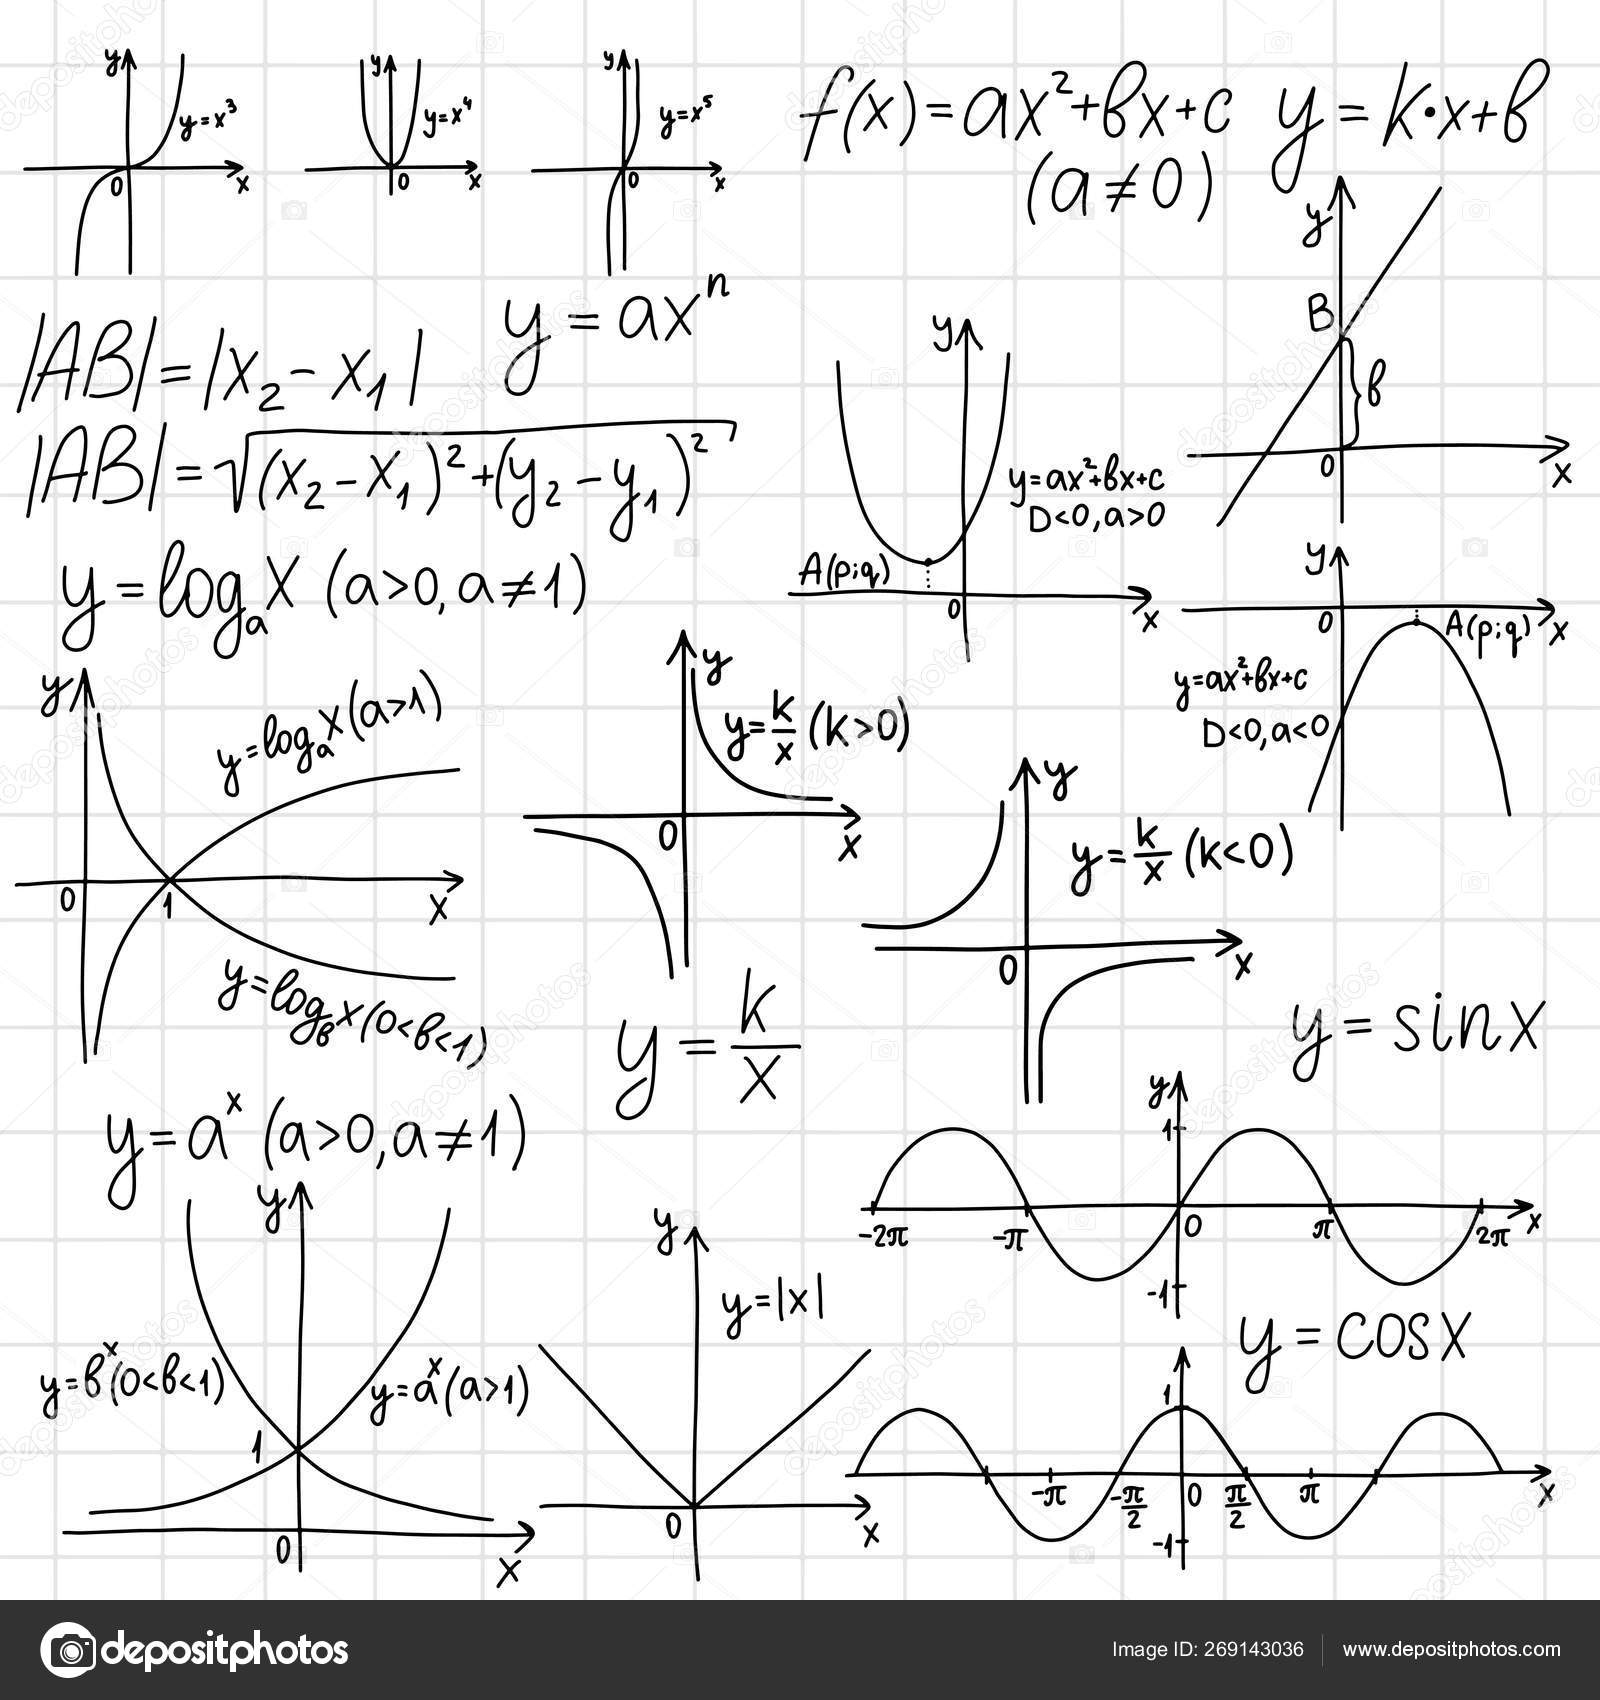 y
y=x³
0
x
y
y=x⁴
0
x
y
y=x⁵
0
x
f(x)=ax²+bx+c
(a≠0)
y=k·x+b
y
B
b
0
x
y=axⁿ
|AB|=|x₂-x₁|
|AB|=√(x₂-x₁)²+(y₂-y₁)²
y
y=ax²+bx+c
D<0, a>0
A(p;q)
0
x
y=logₐx (a>0, a≠1)
y
0
A(p;q)
x
y=ax²+bx+c
D<0, a<0
y
y=logₐx (a>1)
0
1
x
y=log_b x (0<b<1)
y
y=k/x (k>0)
0
x
y
y=k/x (k<0)
0
x
y=k/x
y=sinx
y
1
-2π
-π
0
π
2π
x
-1
y=aˣ (a>0, a≠1)
y
y=bˣ (0<b<1)
y=aˣ (a>1)
1
0
x
y
y=|x|
0
x
y=cosx
1
-π
-π/2
0
π/2
π
x
-1
depositphotos
Image ID: 269143036
www.depositphotos.com